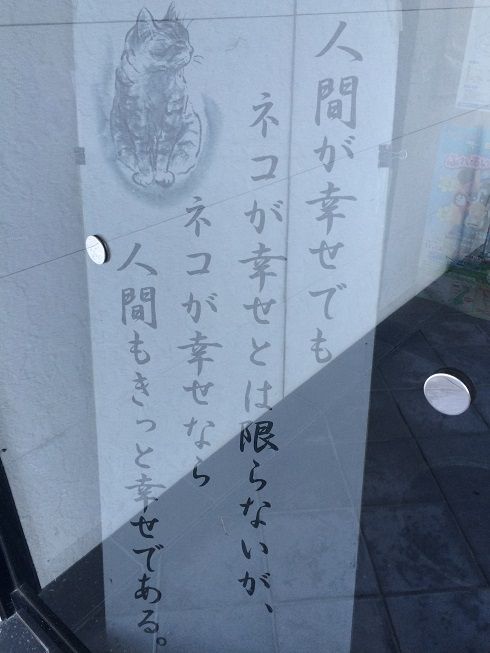 人間が幸せでも
ネコが幸せとは限らないが、
ネコが幸せなら
人間もきっと幸せである。